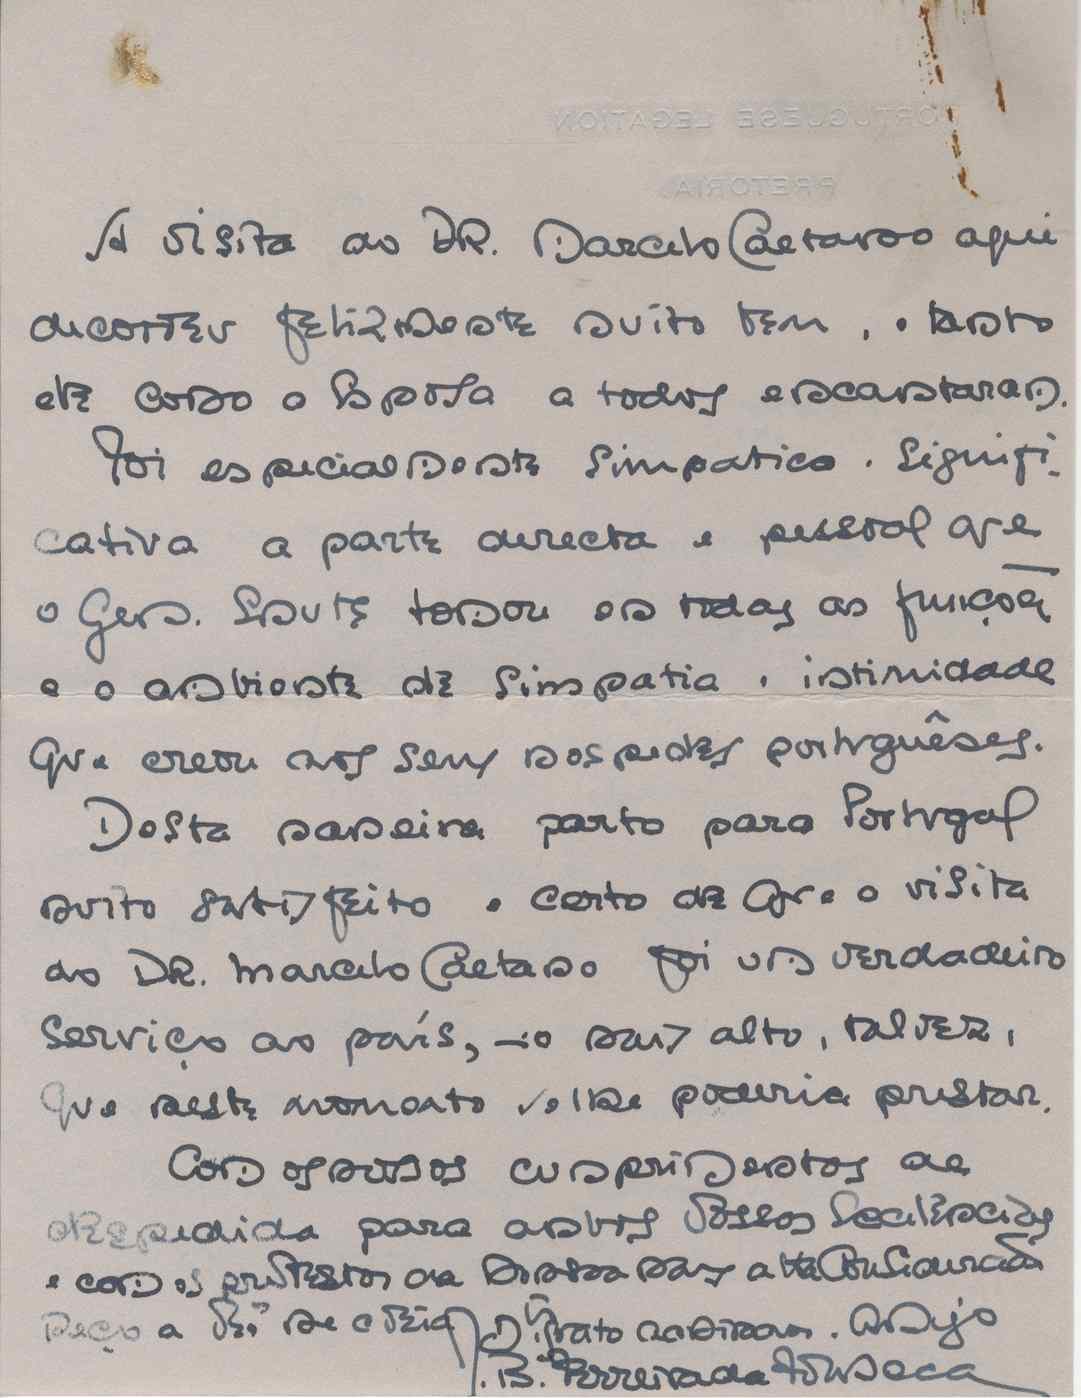 PORTUGUESE LEGATION
PRETORIA
A visita do DR. Marcelo Caetano aqui
decorreu felizmente muito bem, e tanto
ele como a Esposa a todos encantaram.
Foi especialmente simpatico e signifi-
cativa a parte directa e pessoal que
o Gen. Smuts tomou em todas as funções
e o ambiente de simpatia e intimidade
que creou aos seus hospedes portuguêses.
Desta maneira parto para Portugal
muito satisfeito e certo de que a visita
do DR. Marcelo Caetano foi um verdadeiro
serviço ao país, – o mais alto, talvez,
que neste momento se lhe poderia prestar.
Com os nossos cumprimentos de
despedida para ambos Vossas Excelências
e com os protestos da minha mais alta consideração
peço a V. Exª me creia
Mto grato admirador e Amigo
J. B. Ferreira da Fonseca